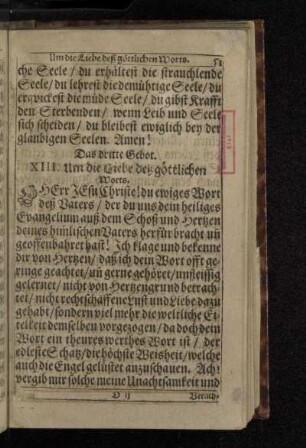 Um die Liebe deß göttlichen Worts. 51
che Seele / du erhältest die strauchlende
Seele / du lehrest die demührige Seele / du
erqvickest die müde Seele / du gibst Krafft
den Sterbenden / wenn Leib und Seele
sich scheiden / du bleibest ewiglich bey der
glaubigen Seelen. Amen!
Das dritte Gebot.
XIII. Um die Liebe deß göttlichen
Worts.
HErr JEsu Christe! du ewiges Wort
deß Vaters / der du uns dein heiliges
Evangelium auß dem Schoß und Hertzen
deines himlischen Vaters herfür bracht uñ
geoffenbahret hast! Ich klage und bekenne
dir von Hertzen / daß ich dein Wort offt ge-
ringe geachtet / uñ gerne gehöret / unfleissig
gelernet / nicht von Hertzengrund betrach-
tet / nicht rechtschaffene Lust und Liebe dazu
gehabt / sondern viel mehr die weltliche Ei-
telkeit demselben vorgezogen / da doch dein
Wort ein theures werthes Wort ist / der
edleste Schatz / die höchste Weisheit / welche
auch die Engel gelüstet anzuschauen. Ach!
vergib mir solche meine Unachtsamkeit und
D ij Verach-